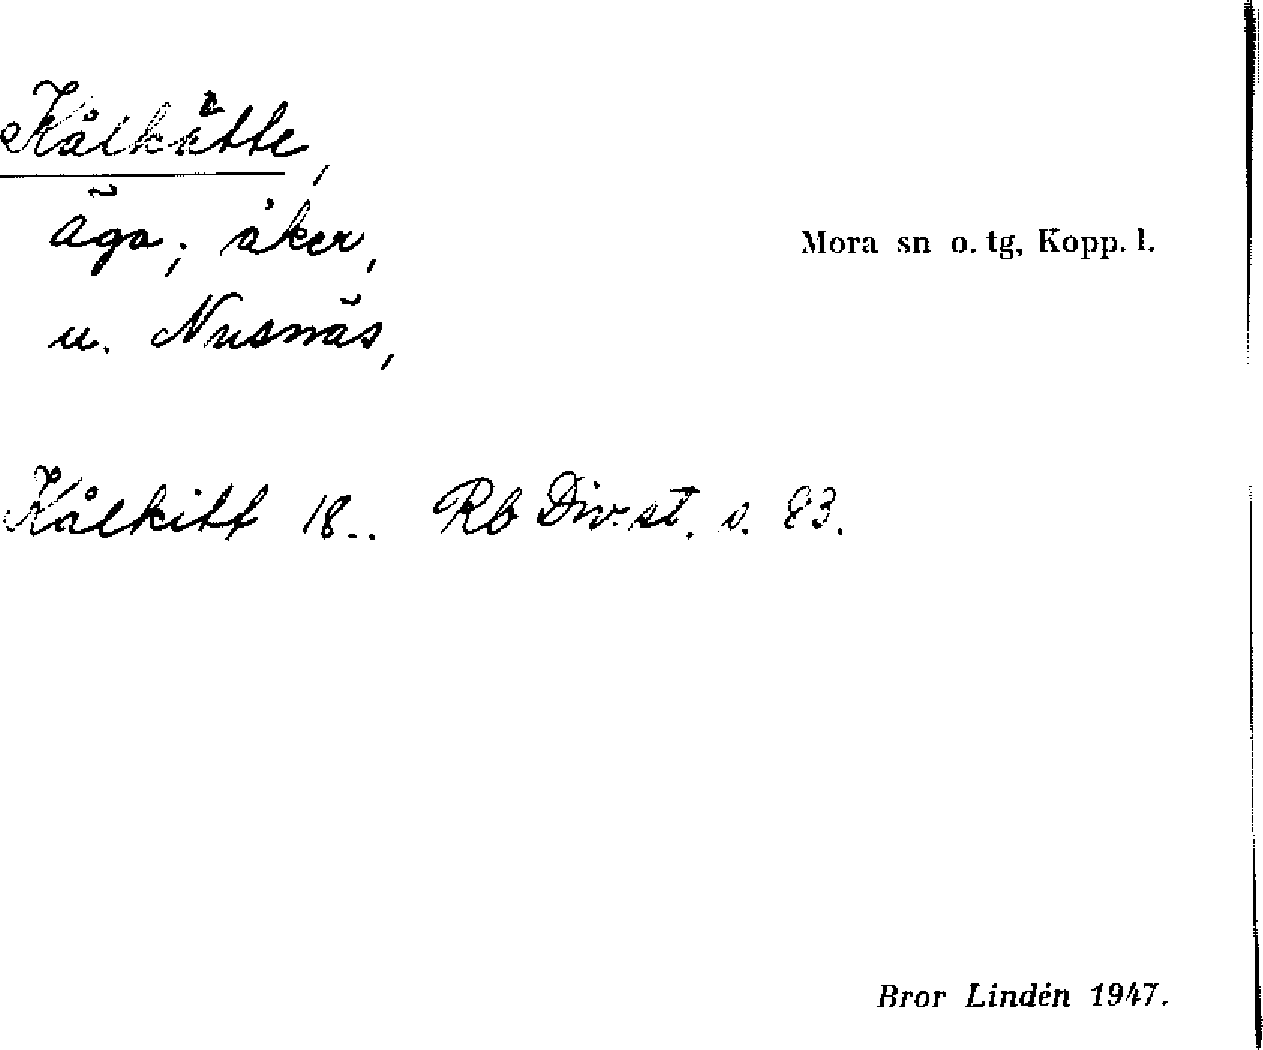 Kålkätte,
äga; åker,
Mora sn o. tg, Kopp. l.
u. Nusnäs,
Kålkitt 18.. Rb Div. st. s. 83.
Bror Lindén 1947.